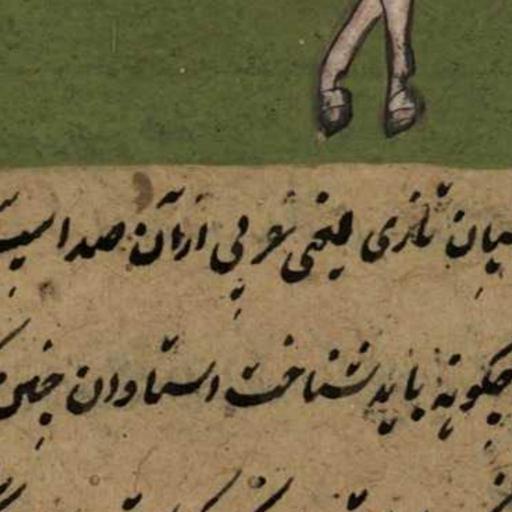 تازی یعنی عربی ازان صد اسپ
چگونه باید شناخت استادان چنین